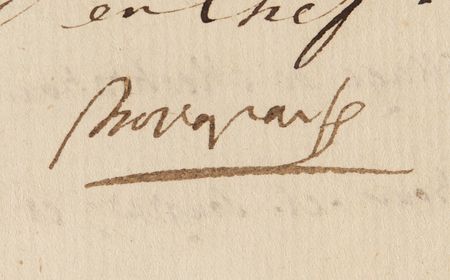 en Chef
Bonaparte